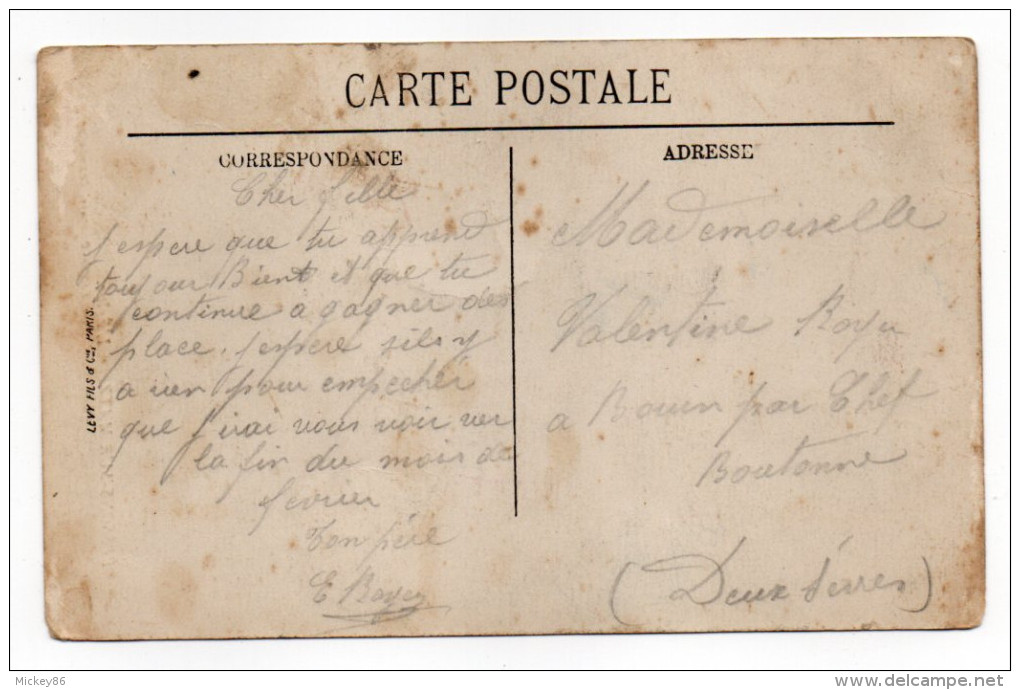 CARTE POSTALE
CORRESPONDANCE
Cher fille
j'espere que tu apprend
toujour Bient et que tu
continue a gagner des
place. j'espere sils y
a rien pour empecher
que j'irai vous voir ver
la fin du mois de
fevrier
Ton père
E
ADRESSE
Mademoiselle
Valentine
a Bouin par Chef
Boutonne
(Deux Sèvres)
LEVY FILS & Cie, PARIS.
Mickey86
delcampe.net